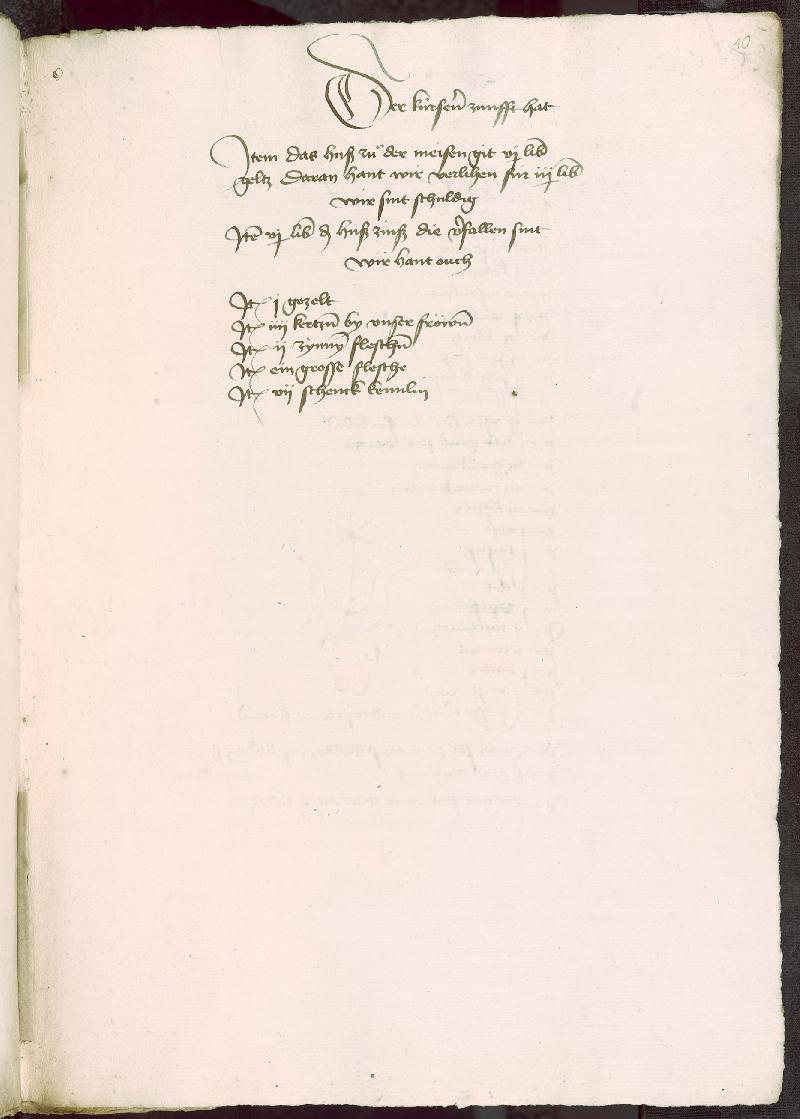 40
Der kúrsen̄ zunfft hat
Item das huß zů der meisen git vj lib
geltz daran hant wir verlihen fúr iij lib
wir sint schuldig
Itē vj lib huß zinß die v̄fallen sint
wir hant ouch
It j gezelt
It iiij kertzn̄ by vnser fröwn̄
It ij zynnyn̄ fleschn̄
It ein grosse flesche
It vij schenck kennlin